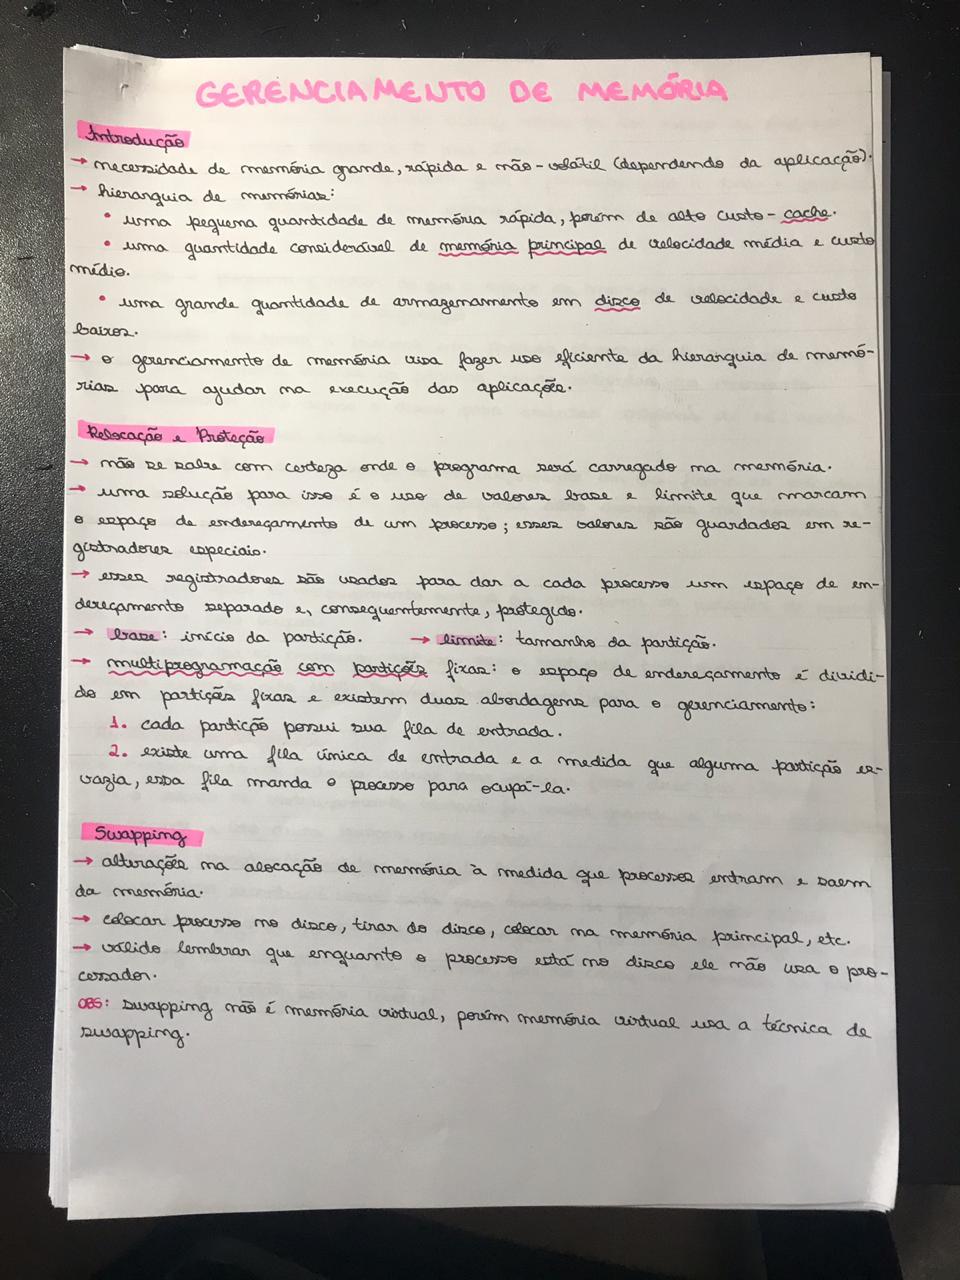 GERENCIAMENTO DE MEMÓRIA
Introdução
→ necessidade de memória grande, rápida e não-volátil (dependendo da aplicação).
→ hierarquia de memórias:
• uma pequena quantidade de memória rápida, porém de alto custo - cache.
• uma quantidade considerável de memória principal de velocidade média e custo
médio.
• uma grande quantidade de armazenamento em disco de velocidade e custo
baixos.
→ o gerenciamento de memória visa fazer uso eficiente da hierarquia de memó-
rias para ajudar na execução das aplicações.
Relocação e Proteção
→ não se sabe com certeza onde o programa será carregado na memória.
→ uma solução para isso é o uso de valores base e limite que marcam
o espaço de endereçamento de um processo; esses valores são guardados em re-
gistradores especiais.
→ esses registradores são usados para dar a cada processo um espaço de en-
dereçamento separado e, consequentemente, protegido.
→ base: início da partição. → limite: tamanho da partição.
→ multiprogramação com partições fixas: o espaço de endereçamento é dividi-
do em partições fixas e existem duas abordagens para o gerenciamento:
1. cada partição possui sua fila de entrada.
2. existe uma fila única de entrada e a medida que alguma partição es-
vazia, essa fila manda o processo para ocupá-la.
Swapping
→ alterações na alocação de memória à medida que processos entram e saem
da memória.
→ colocar processo no disco, tirar do disco, colocar na memória principal, etc.
→ válido lembrar que enquanto o processo está no disco ele não usa o pro-
cessador.
OBS: swapping não é memória virtual, porém memória virtual usa a técnica de
swapping.